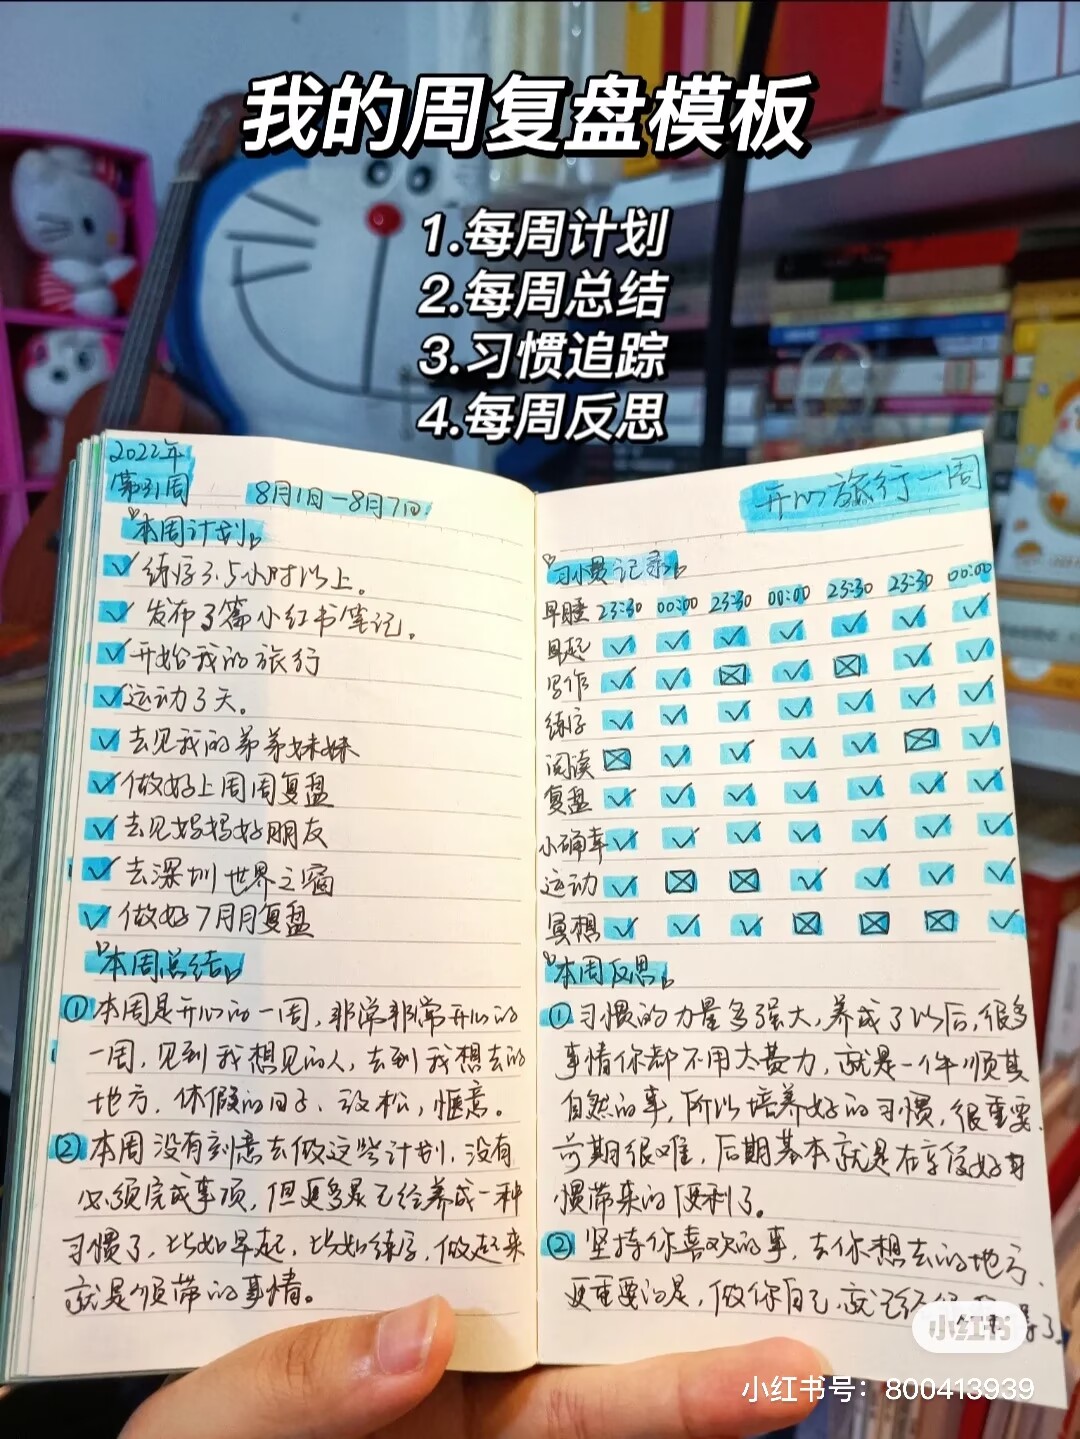 我的周复盘模板
1.每周计划
2.每周总结
3.习惯追踪
4.每周反思
2022年
第31周
8月1日—8月7日
本周计划
练字3.5小时以上。
发布3篇小红书笔记。
开始我的旅行
运动3天。
去见我的弟弟妹妹
做好上周周复盘
去见妈妈好朋友
去深圳世界之窗
做好7月月复盘
本周总结
①本周是开心的一周,非常非常开心的
一周,见到我想见的人,去到我想去的
地方,休假的日子、放松,惬意。
②本周没有刻意去做这些计划,没有
必须完成事项,但更多是已经养成一种
习惯了,比如早起,比如练字,做起来
就是顺带的事情。
开心旅行一周
习惯记录
早睡 23:30 00:00 23:30 00:00 23:30 23:30 00:00
早起
写作
练字
阅读
复盘
小确幸
运动
冥想
本周反思
①习惯的力量多强大,养成了以后,很多
事情你都不用太费力,就是一件顺其
自然的事,所以培养好的习惯,很重要.
前期很难,后期基本就是在享受好习
惯带来的便利了。
②坚持你喜欢的事,去你想去的地方、
更重要的是,做你自己,就已经很 了
小红书
小红书号:800413939